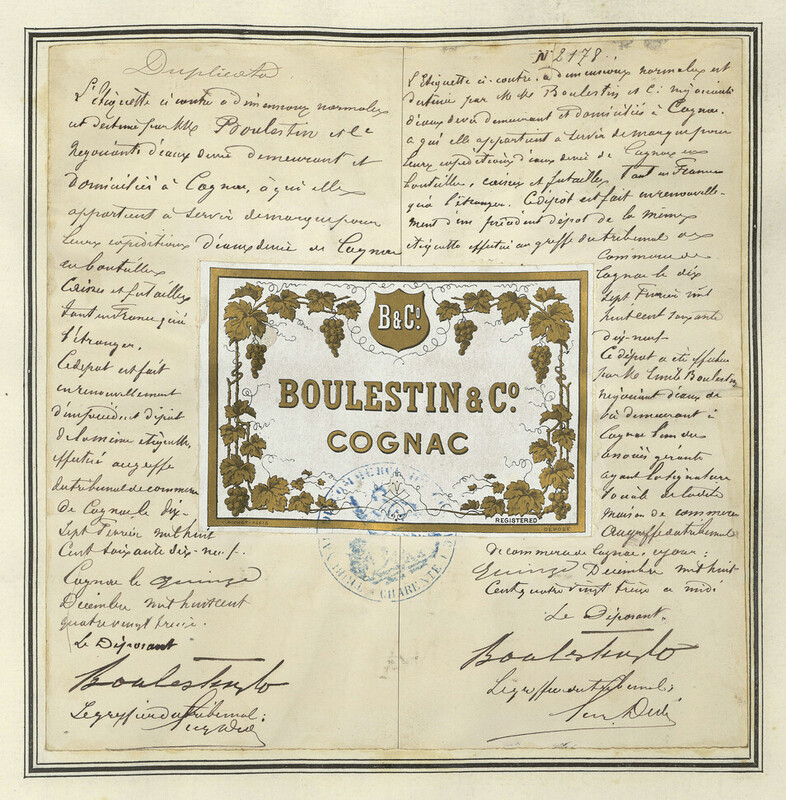 Duplicata
L'Etiquette ci contre à dimensions normales
est destinée par MM Boulestin et Cie
Négociants d'eaux devie demeurant et
Domiciliés à Cognac, à qui elle
appartient à servir demarque pour
leurs expéditions d'eaux devie de Cognac
en bouteilles
Caisses et futailles
tant en France qu'à
l'étranger.
Ce dépot est fait
en renouvellement
d'un précédent dépôt
de la même etiquette
effectué au greffe
du tribunal de commerce
de Cognac le dix-
Sept Fevrier mil huit
Cent soixante dix-neuf.
Cognac le quinze
Décembre mil huit cent
quatre vingt treize.
Le Déposant
Boulestin & Co
Le greffier du Tribunal:
N° 2178.
L'Etiquette ci-contre à dimensions normales est
destinée par M M Boulestin et Cie négociants
d'eaux devie demeurant et domiciliés à Cognac.
a qui elle appartient à servir de marque pour
leurs expéditions d'eaux devie de Cognac en
bouteilles, caisses et futailles tant en France
qu'à l'étranger. Ce dépôt est fait en renouvelle-
ment d'un précédent dépot de la même
etiquette effectué au greffe du tribunal de
Commerce de
Cognac le dix
Sept Fevrier mil
huit cent soixante
dix-neuf.
Ce dépôt a été effectué
par M. Emile Boulestin
négociant d'eaux de
vie demeurant à
Cognac l'un des
associés gérants
ayant la signature
sociale de la dite
maison de commerce
Au greffe du tribunal
de commerce de Cognac, ce jour:
Quinze Décembre mil huit
Cent quatre vingt treize a midi
Le Déposant.
Boulestin & Co
Le greffier du Tribunal:
B & Co.
BOULESTIN & Co.
COGNAC
REGISTERED
DÉPOSÉ
TRIBUNAL DE COMMERCE
CHARENTE